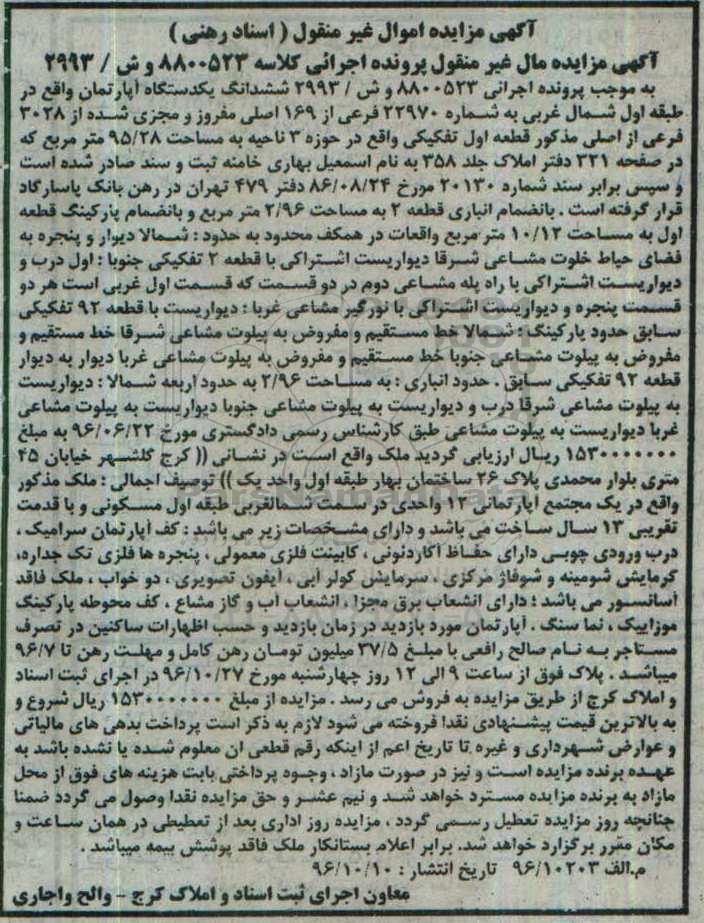 آگهی مزایده اموال غیر منقول ( اسناد رهنی )
آگهی مزایده مال غیر منقول پرونده اجرائی کلاسه ۸۸۰۰۵۲۳ و ش / ۲۹۹۳
به موجب پرونده اجرائی ۸۸۰۰۵۲۳ و ش / ۲۹۹۳ ششدانگ یکدستگاه آپارتمان واقع در
طبقه اول شمال غربی به شماره ۲۲۹۷۰ فرعی از ۱۶۹ اصلی مفروز و مجزی شده از ۳۰۲۸
فرعی از اصلی مذکور قطعه اول تفکیکی واقع در حوزه ۳ ناحیه به مساحت ۹۵/۲۸ متر مربع که
در صفحه ۳۲۱ دفتر املاک جلد ۳۵۸ به نام اسمعیل بهاری خامنه ثبت و سند صادر شده است
و سپس برابر سند شماره ۲۰۱۳۰ مورخ ۸۶/۰۸/۲۴ دفتر ۴۷۹ تهران در رهن بانک پاسارگاد
قرار گرفته است . بانضمام انباری قطعه ۲ به مساحت ۲/۹۶ متر مربع و بانضمام پارکینگ قطعه
اول به مساحت ۱۰/۱۲ متر مربع واقعات در همکف محدود به حدود : شمالا دیوار و پنجره به
فضای حیاط خلوت مشاعی شرقا دیواریست اشتراکی با قطعه ۲ تفکیکی جنوبا : اول درب و
دیواریست اشتراکی با راه پله مشاعی دوم در دو قسمت که قسمت اول غربی است هر دو
قسمت پنجره و دیواریست اشتراکی با نورگیر مشاعی غربا : دیواریست با قطعه ۹۲ تفکیکی
سابق حدود پارکینگ : شمالا خط مستقیم و مفروض به پیلوت مشاعی شرقا خط مستقیم و
مفروض به پیلوت مشاعی جنوبا خط مستقیم و مفروض به پیلوت مشاعی غربا دیوار به دیوار
قطعه ۹۲ تفکیکی سابق . حدود انباری : به مساحت ۲/۹۶ به حدود اربعه شمالا : دیواریست
به پیلوت مشاعی شرقا درب و دیواریست به پیلوت مشاعی جنوبا دیواریست به پیلوت مشاعی
غربا دیواریست به پیلوت مشاعی طبق کارشناس رسمی دادگستری مورخ ۹۶/۰۶/۲۲ به مبلغ
۱۵۳۰۰۰۰۰۰۰ ریال ارزیابی گردید ملک واقع است در نشانی (( کرج گلشهر خیابان ۴۵
متری بلوار محمدی پلاک ۲۶ ساختمان بهار طبقه اول واحد یک )) توصیف اجمالی : ملک مذکور
واقع در یک مجتمع آپارتمانی ۱۳ واحدی در سمت شمالغربی طبقه اول مسکونی و با قدمت
تقریبی ۱۳ سال ساخت می باشد و دارای مشخصات زیر می باشد : کف آپارتمان سرامیک ،
درب ورودی چوبی دارای حفاظ آکاردئونی ، کابینت فلزی معمولی ، پنجره ها فلزی تک جداره،
گرمایش شومینه و شوفاژ مرکزی ، سرمایش کولر آبی ، آیفون تصویری ، دو خواب ، ملک فاقد
آسانسور می باشد ؛ دارای انشعاب برق مجزا ، انشعاب آب و گاز مشاع ، کف محوطه پارکینگ
موزاییک ، نما سنگ . آپارتمان مورد بازدید در زمان بازدید و حسب اظهارات ساکنین در تصرف
مستاجر به نام صالح رافعی با مبلغ ۳۷/۵ میلیون تومان رهن کامل و مهلت رهن تا ۹۶/۷
میباشد . پلاک فوق از ساعت ۹ الی ۱۲ روز چهارشنبه مورخ ۹۶/۱۰/۲۷ در اجرای ثبت اسناد
و املاک کرج از طریق مزایده به فروش می رسد . مزایده از مبلغ ۱۵۳۰۰۰۰۰۰۰ ریال شروع و
به بالاترین قیمت پیشنهادی نقدا فروخته می شود لازم به ذکر است پرداخت بدهی های مالیاتی
و عوارض شهرداری و غیره تا تاریخ اعم از اینکه رقم قطعی آن معلوم شده یا نشده باشد به
عهده برنده مزایده است و نیز در صورت مازاد ، وجوه پرداختی بابت هزینه های فوق از محل
مازاد به برنده مزایده مسترد خواهد شد و نیم عشر و حق مزایده نقدا وصول می گردد ضمنا
چنانچه روز مزایده تعطیل رسمی گردد ، مزایده روز اداری بعد از تعطیلی در همان ساعت و
مکان مقرر برگزارد خواهد شد. برابر اعلام بستانکار ملک فاقد پوشش بیمه میباشد .
م.الف ۹۶/۱۰۲۰۳ تاریخ انتشار : ۹۶/۱۰/۱۰
معاون اجرای ثبت اسناد و املاک کرج - والح واجاری
ParsNamadData